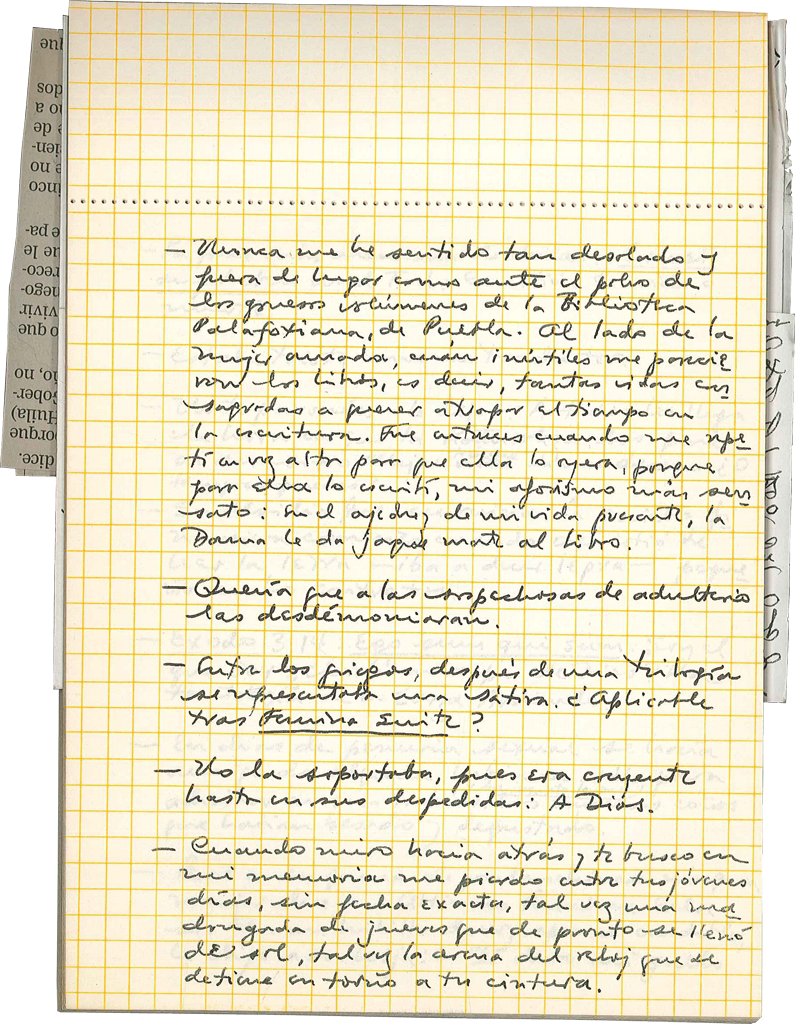 — Nunca me he sentido tan desolado y
fuera de lugar como ante el polvo de
los gruesos volúmenes de la Biblioteca
Palafoxiana, de Puebla. Al lado de la
mujer amada, cuán inútiles me parecie
ron los libros, es decir, tantas vidas con
sagradas a querer atrapar el tiempo en
la escritura. Fue entonces cuando me repe
tí en voz alta para que ella lo oyera, porque
para ella lo escribí, mi aforismo más sen
sato: En el ajedrez de mi vida presente, la
Dama le da jaque mate al Libro.
— Quería que a las sospechosas de adulterio
las desdémoniaran.
— Entre los griegos, después de una trilogía
se representaba una sátira. ¿Aplicable
tras Femina Suite?
— No la soportaba, pues era creyente
hasta en sus despedidas: A Dios.
— Cuando miro hacia atrás y te busco en
mi memoria me pierdo entre tus jóvenes
días, sin fecha exacta, tal vez una ma
drugada de jueves que de pronto se llenó
de sol, tal vez la arena del reloj que se
detiene en torno a tu cintura.
que
dos
no a
e de
ien-
e no
inco
e pa-
que le
reco-
nego-
vivir
o que
io, no
Gober-
(Hulla
porque
dice.